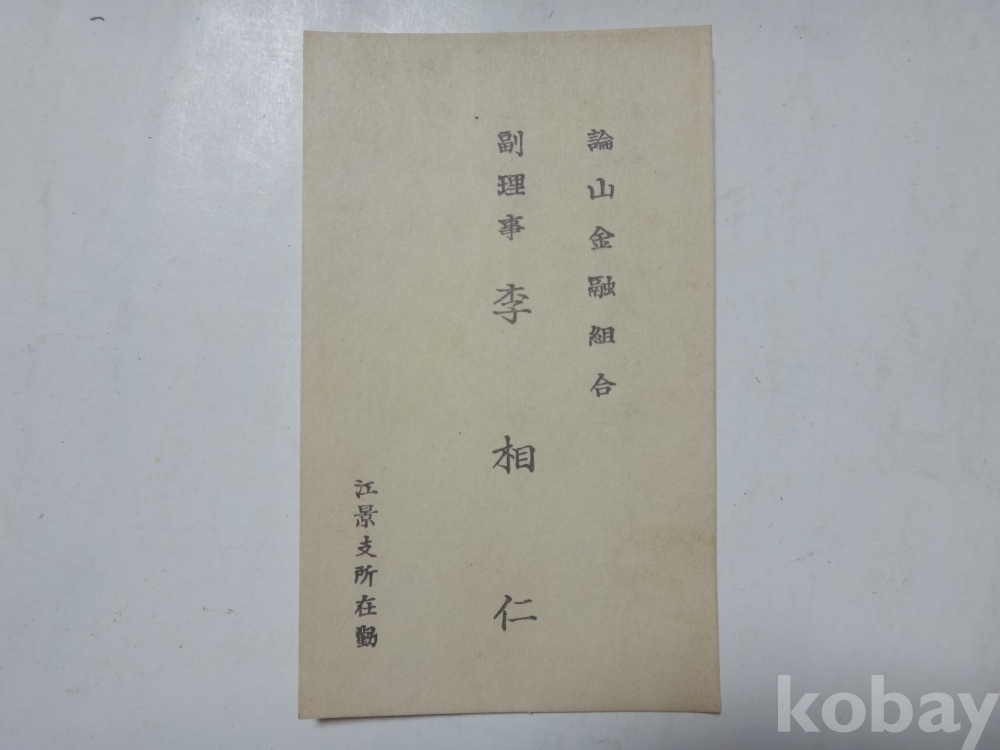 論山金融組合
副理事 李相仁
江景支所在勤
kobay